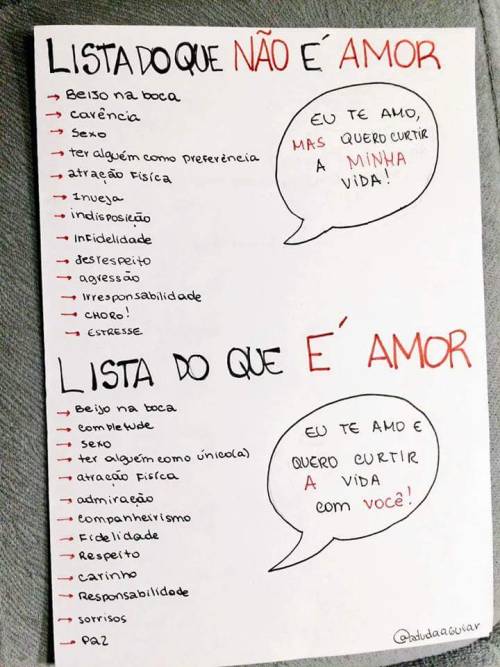 LISTA DO QUE NÃO É AMOR
→ Beijo na boca
→ carência
→ sexo
→ ter alguém como preferência
→ atração Física
→ Inveja
→ indisposição
→ Infidelidade
→ desrespeito
→ agressão
→ Irresponsabilidade
→ CHORO!
→ ESTRESSE
EU TE AMO,
MAS QUERO CURTIR
A MINHA
VIDA!
LISTA DO QUE É AMOR
→ Beijo na boca
→ completude
→ sexo
→ ter alguém como único(a)
→ atração Física
→ admiração
→ companheirismo
→ Fidelidade
→ Respeito
→ carinho
→ Responsabilidade
→ sorrisos
→ paz
EU TE AMO E
QUERO CURTIR
A VIDA
com você!
@adudaaguiar